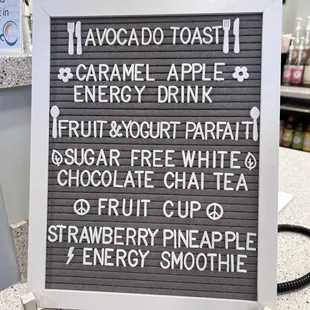 AVOCADO TOAST
CARAMEL APPLE
ENERGY DRINK
FRUIT&YOGURT PARFAIT
SUGAR FREE WHITE
CHOCOLATE CHAI TEA
FRUIT CUP
STRAWBERRY PINEAPPLE
ENERGY SMOOTHIE